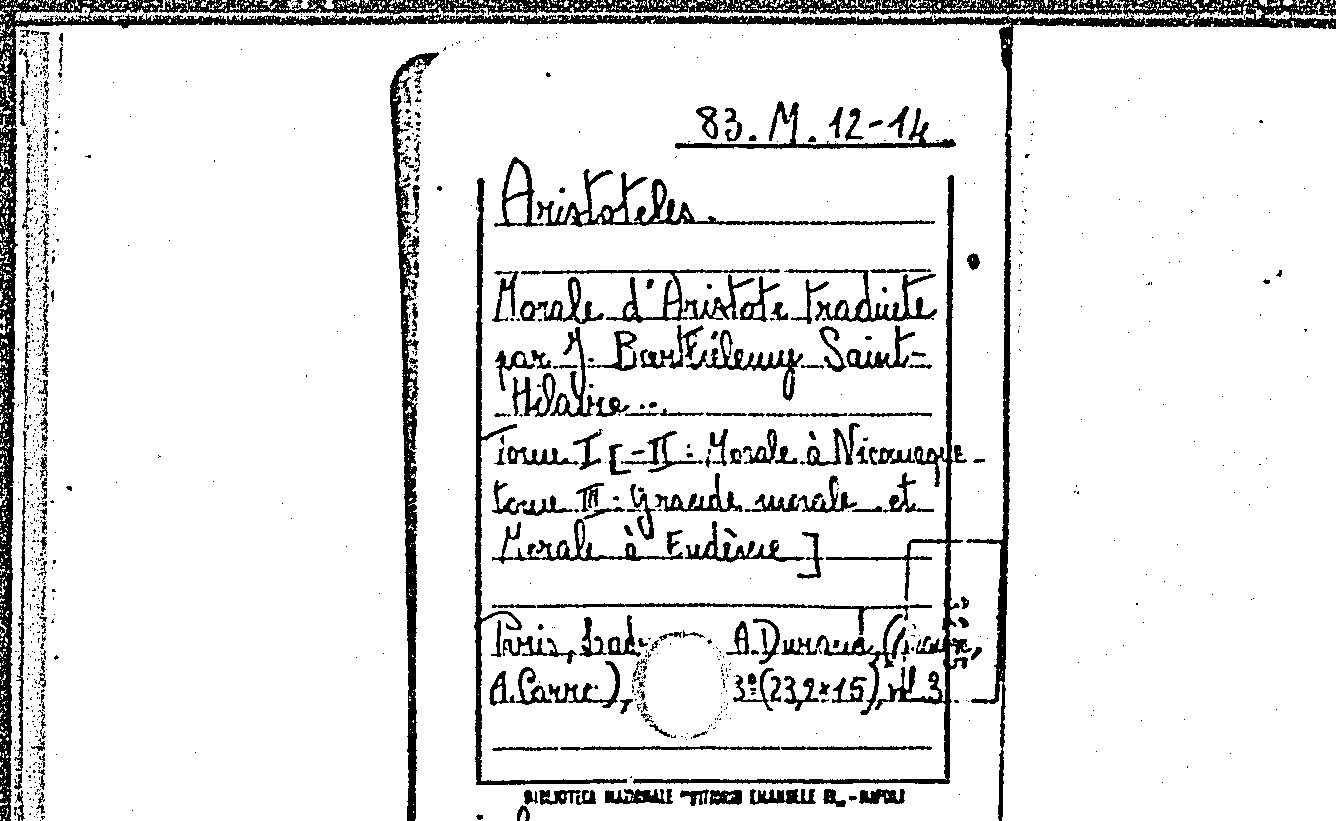 83. M. 12-14
Aristoteles.
Morale d'Aristote traduite
par J. Barthélemy Saint-
Hilaire ...
Tome I [-II: Morale à Nicomaque -
tome III: Grande morale et
Morale à Eudème]
Paris, A. Durand,
A. Carre), (23,2×15), vol. 3
BIBLIOTECA NAZIONALE "VITTORIO EMANUELE III" - NAPOLI